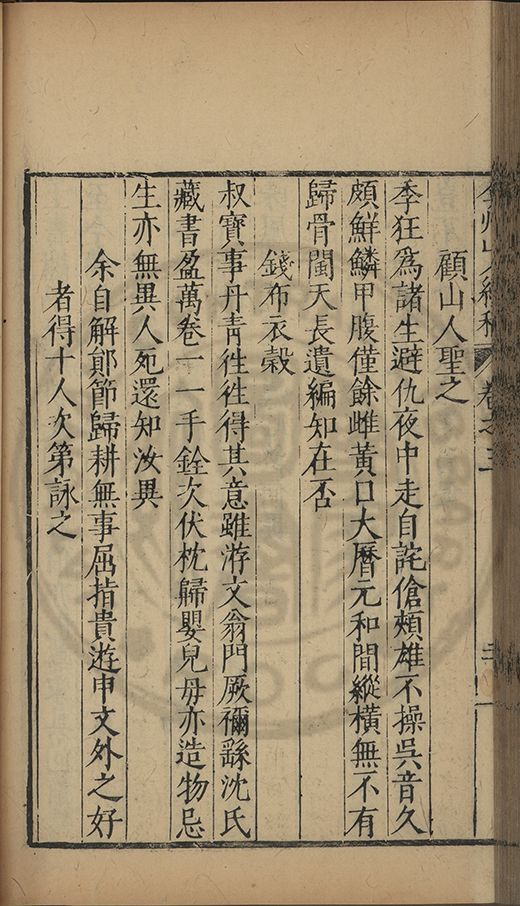 顧山人聖之
季狂爲諸生避仇夜中走自詫傖頰雄不操吳音久
頗鮮鱗甲腹僅餘雌黃口大曆元和間縱橫無不有
歸骨閩天長遺編知在否
錢布衣穀
叔寶事丹青徃徃得其意雖游文翁門厥禰繇沈氏
藏書盈萬卷一一手銓次伏枕歸嬰兒毋亦造物忌
生亦無異人死還知汝異
余自解鄖節歸耕無事屈指貴遊申文外之好
者得十人次第詠之